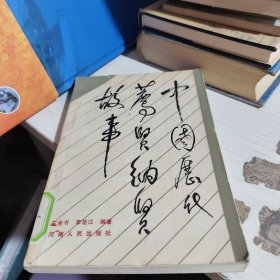 中国历代
荐贤纳贤
故事
孟金书 李栓江 编著
河南人民出版社